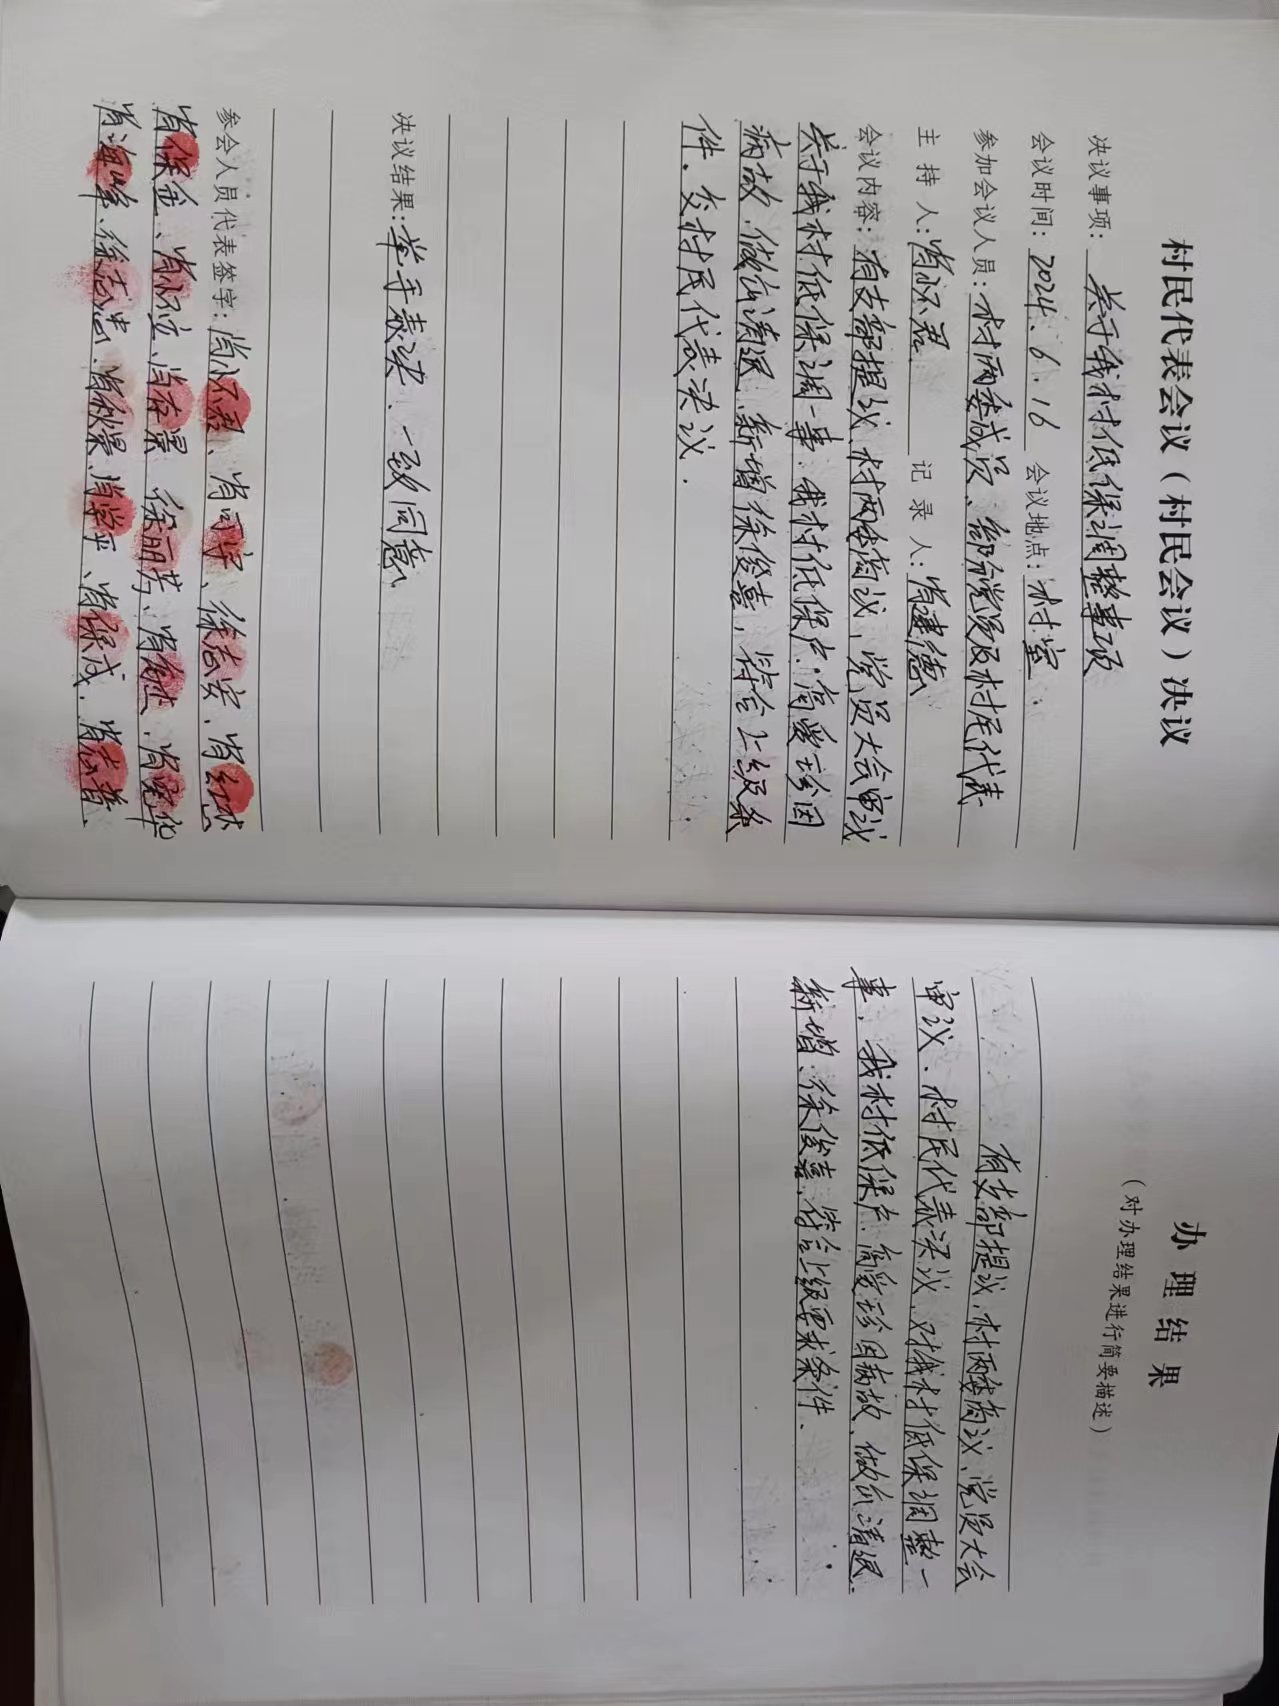 村民代表会议（村民会议）决议
决议事项：关于我村低保调整事项
会议时间：2024.6.16 会议地点：村室.
参加会议人员：村两委成员、部分党员及村民代表
主持人：肖怀君 记录人：肖建德
会议内容：有支部提议、村两委商议，党员大会审议
关于我村低保调一事：我村低保户：高爱珍因
病故，做出清退、新增徐俊喜，符合上级条
件. 交村民代表决议.
决议结果：举手表决，一致同意
参会人员代表签字：肖怀君、肖 宇、徐志安、肖
肖保金、肖怀立、肖存景 徐丽芳、肖 、肖
肖海峰、徐志忠、肖秋景、肖学平、肖保成、肖志普、
办理结果
（对办理结果进行简要描述）
有支部提议，村两委商议、党员大会
审议、村民代表决议，对我村低保调整一
事，我村低保户：高爱珍因病故，做出清退.
新增：徐俊喜，符合上级要求条件.